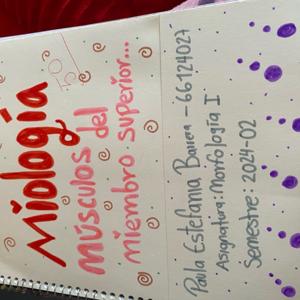 Miología
Músculos del
miembro superior...
50
Paula Estefania Barrera - 66124027
Asignatura: Morfología I
Semestre: 2024-02